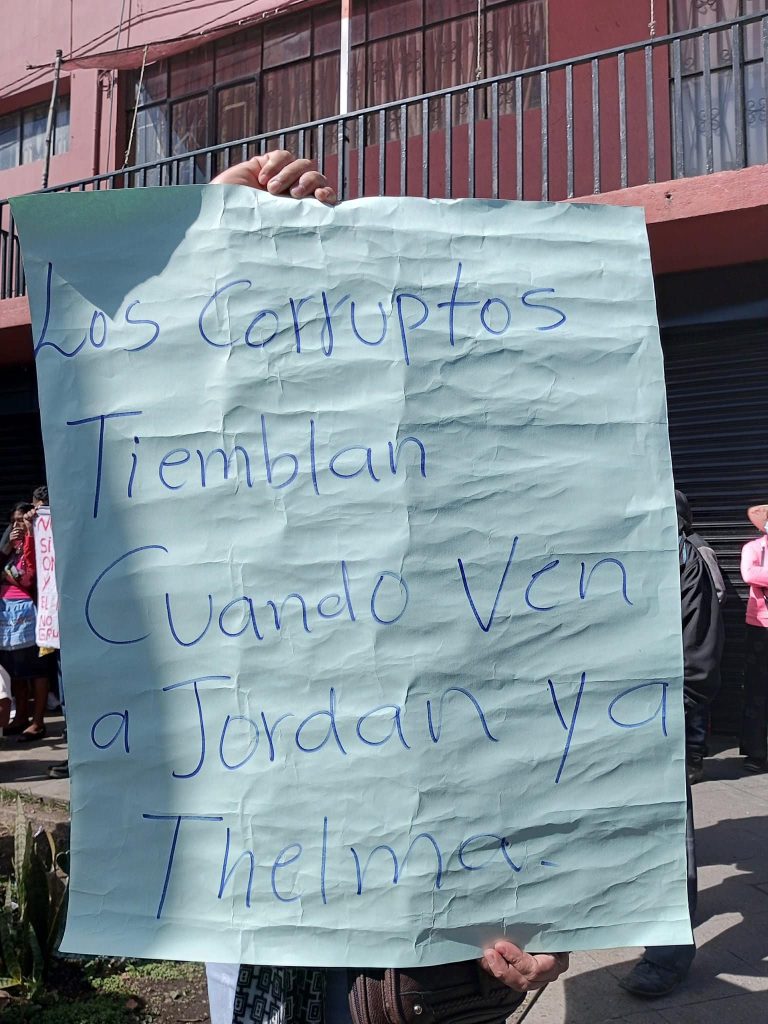 Los Corruptos
Tiemblan
Cuando Ven
a Jordan ya
Thelma.-
NO